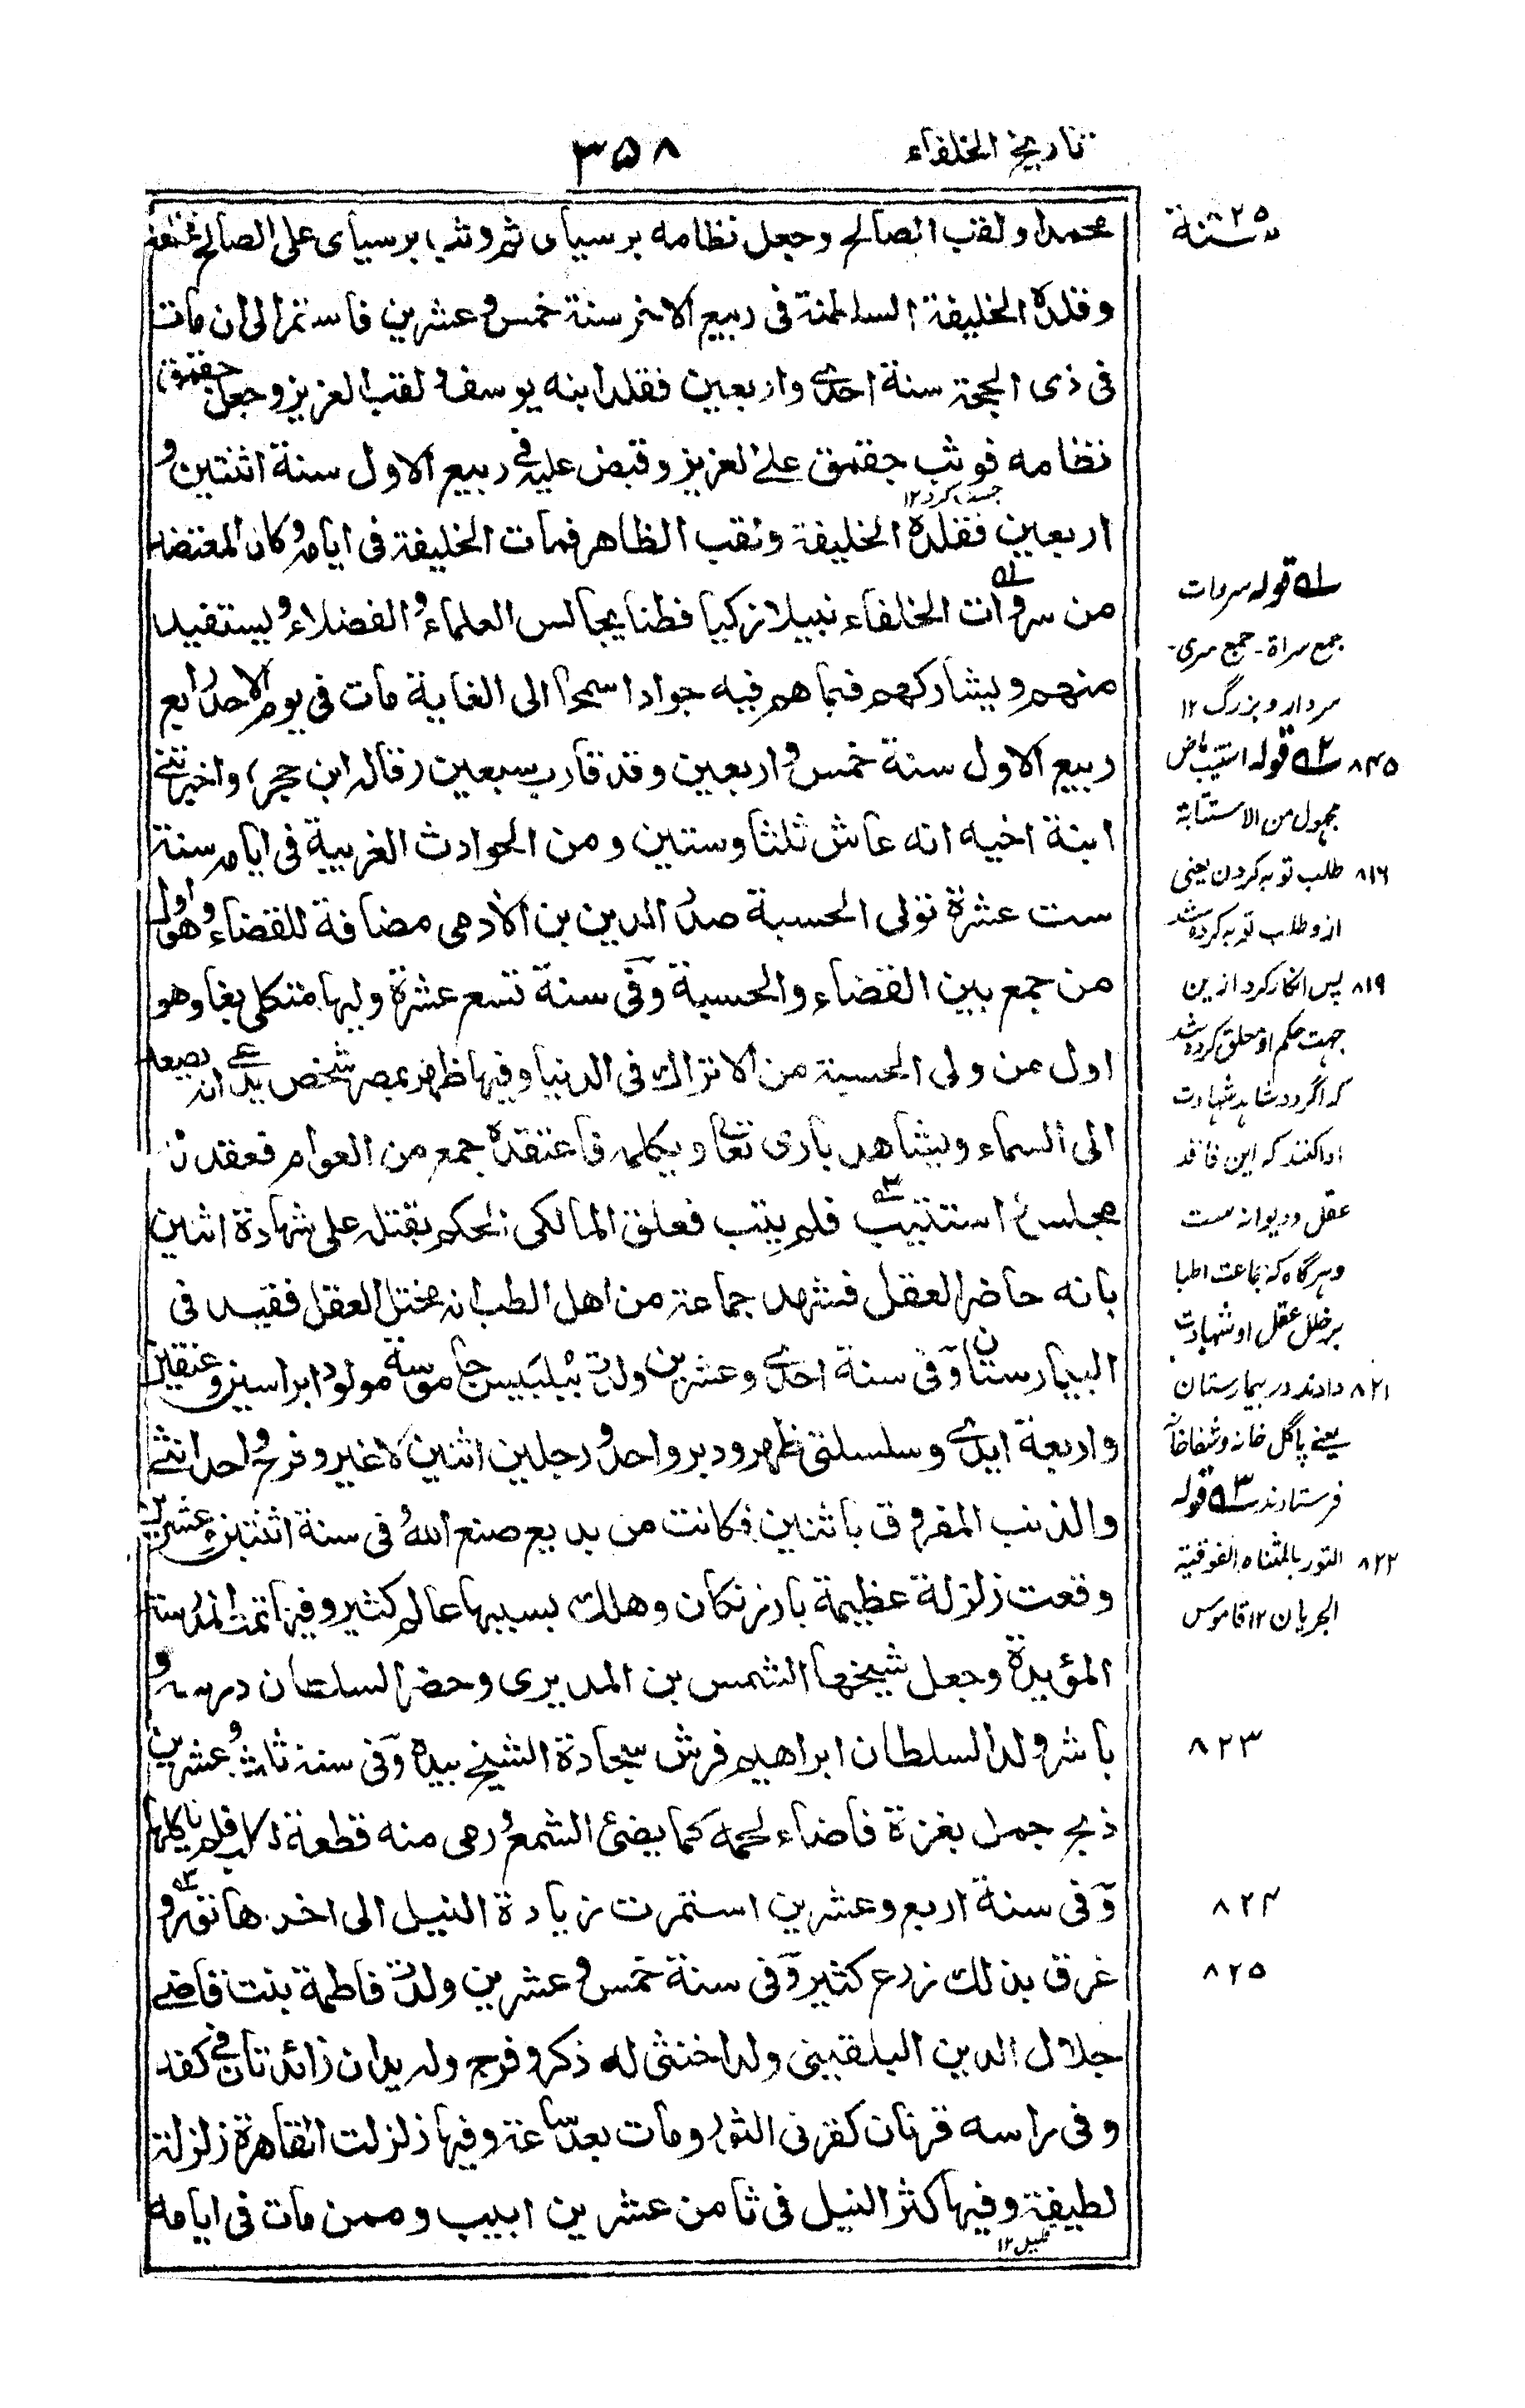 تاريخ الخلفاء
٣٥٨
محمدا ولقب الصالح وجعل نظامه برسباى ثم وثب برسباى على الصالح فخلعه
وقلده الخليفة السلطنة فى ربيع الاخر سنة خمس وعشرين فاستمر الى ان مات
فى ذى الحجة سنة احدى واربعين فقلد ابنه يوسف لقب العزيز وجعل جقمق
نظامه فوثب جقمق على العزيز وقبض عليه فى ربيع الاول سنة اثنتين و
اربعين فقلده الخليفة ولقب الظاهر فمات الخليفة فى ايامه وكان المعتضد
من سروات الخلفاء نبيلا زكيا فطنا يجالس العلماء والفضلاء ويستفيد
منهم ويشاركهم فيما هم فيه جوادا سمحا الى الغاية مات فى يوم الاحد رابع
ربيع الاول سنة خمس واربعين وقد قارب سبعين (قاله ابن حجر) واخبرتنى
ابنة اخيه انه عاش ثلثا وستين ومن الحوادث الغريبة فى ايامه سنة
ست عشرة تولى الحسبة صدر الدين بن الأدمى مضافة للقضاء وهو اول
من جمع بين القضاء والحسبة وفى سنة تسع عشرة وليها منكلى بغا وهو
اول من ولى الحسبة من الاتراك فى الدنيا وفيها ظهر بمصر شخص يدعى انه يصعد
الى السماء ويشاهد بارى تعالى ويكلمه فاعتقده جمع من العوام فعقد له
مجلس استتيب فلم يتب فعلق المالكى الحكم بقتله على شهادة اثنين
بانه حاضر العقل فشهد جماعة من اهل الطب انه مختل العقل فقيد فى
البيمارستان وفى سنة احدى وعشرين ولدت ببلبيس جاموسة مولودا براسين وعنقين
واربعة ايدى وسلسلتى ظهر ودبر واحد ورجلين اثنين لا غير وفرج واحد انثى
والذنب المفروق باثنين فكانت من بديع صنع الله وفى سنة اثنتين وعشرين
وقعت زلزلة عظيمة بارزنكان وهلك بسببها عالم كثير وفيها تمت المدرسة
المؤيدية وجعل شيخها الشمس بن المديرى وحضر السلطان درسه و
باشر ولد السلطان ابراهيم فرش سجادة الشيخ بيده وفى سنة ثالث وعشرين
ذبح جمل بغزة فاضاء لحمه كما يضئ الشمع ورمى منه قطعة لكلب فلم ياكلها
وفى سنة اربع وعشرين استمرت زيادة النيل الى اخر هاتور و
غرق بذلك زرع كثير وفى سنة خمس وعشرين ولدت فاطمة بنت قاضى
جلال الدين البلقينى ولدا خنثى له ذكر وفرج وله يدان زائدتان فى كفه
وفى راسه قرنان كقرنى الثور ومات بعد ساعة وفيها زلزلت القاهرة زلزلة
لطيفة وفيها كثر النيل فى ثامن عشرين ابيب وممن مات فى ايامه
قليل ١٢
٨٢٥ سنة
ـه قوله سروات
جمع سراة - جمع سرى -
سردار و بزرگ ١٢
٨٤٥ ٢ـه قوله استتيب ماض
مجهول من الاستتابة
٨١٦ طلب توبه كردن يعنى
ازو طلب توبه كرده شد
٨١٩ پس انكار كرد ازين
جهت حكم او معلق كرده شد
كه اگر دو شاهد شهادت
ادا كنند كه اين فاقد
عقل و ديوانه ست
وهرگاه كه جماعت اطبا
بر خلل عقل او شهادت
٨٢١ دادند در بيمارستان
يعنے پاگل خانه و شفاخانه
فرستادند ٣ـه قوله
٨٢٢ التور بالمثناة الفوقية
الجريان ١٢ قاموس
٨٢٣
٨٢٤
٨٢٥